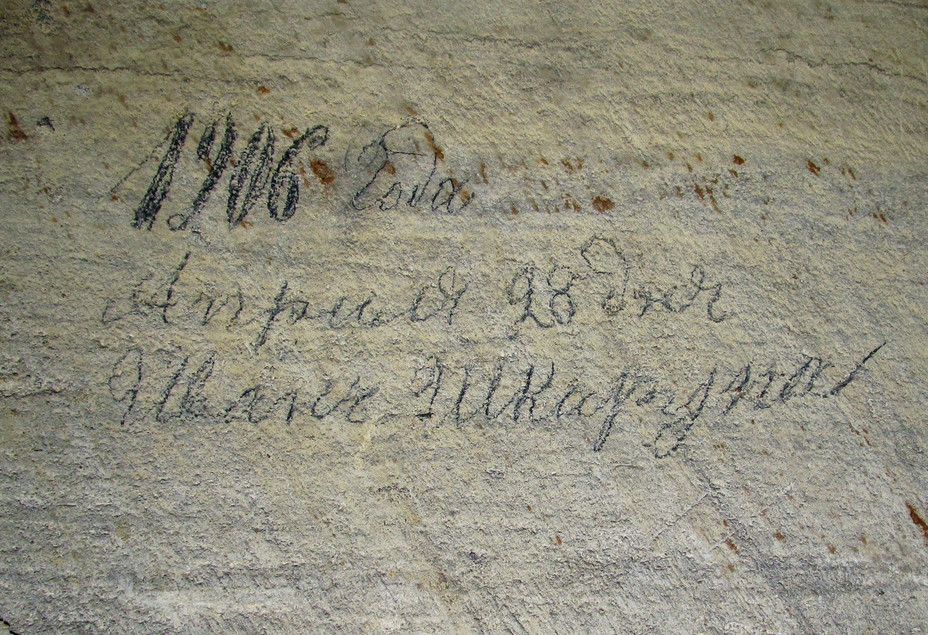 1906 Года
Апреля 28 дня
Иванъ